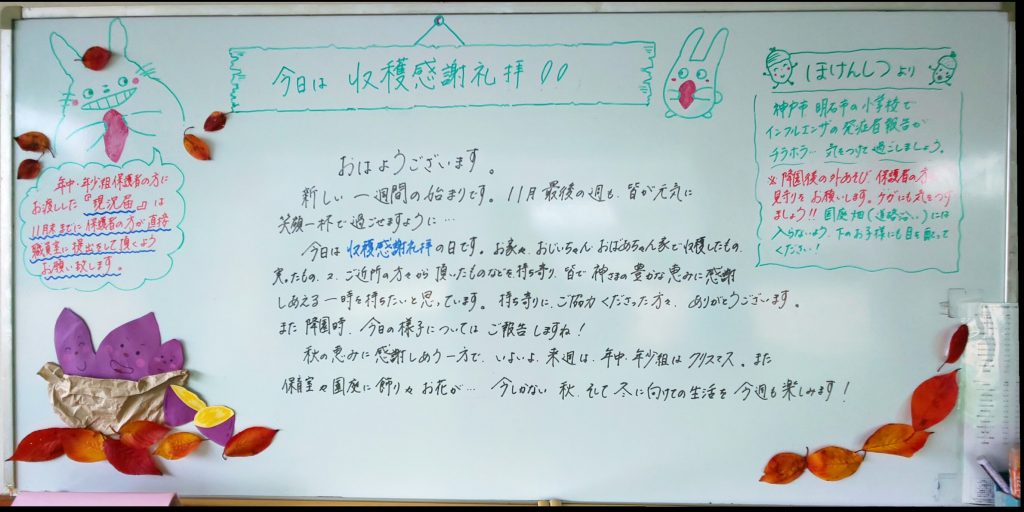 今日は 収穫感謝礼拝!!
おはようございます。
新しい一週間の始まりです。11月最後の週も、皆が元気に
笑顔一杯で過ごせますように…
今日は収穫感謝礼拝の日です。お家や、おじいちゃん おばあちゃん家で収穫したもの、
実ったもの、又、ご近所の方々から頂いたものなどを持ち寄り、皆で神さまの豊かな恵みに感謝
しあえる一時を持ちたいと思っています。持ち寄りに、ご協力くださった方々、ありがとうございます。
また降園時、今日の様子についてはご報告しますね!
秋の恵みに感謝しあう一方で、いよいよ、来週は、年中・年少組はクリスマス、また
保育室や園庭に飾りやお花が… 今しかない 秋、そして冬に向けての生活を今週も楽しみます!
年中・年少組保護者の方に
お渡しした『現況届』は
11月末までに保護者の方が直接
職員室に提出をして頂くよう
お願い致します。
ほけんしつより
神戸市 明石市の小学校で
インフルエンザの発症者報告が
チラホラ… 気をつけて過ごしましょう。
※降園後の外あそび、保護者の方、
見守りをお願いします。ケガにも気をつけ
ましょう!! 園庭畑(道路沿い)には
入らないよう、下のお子様にも目を配って
ください!